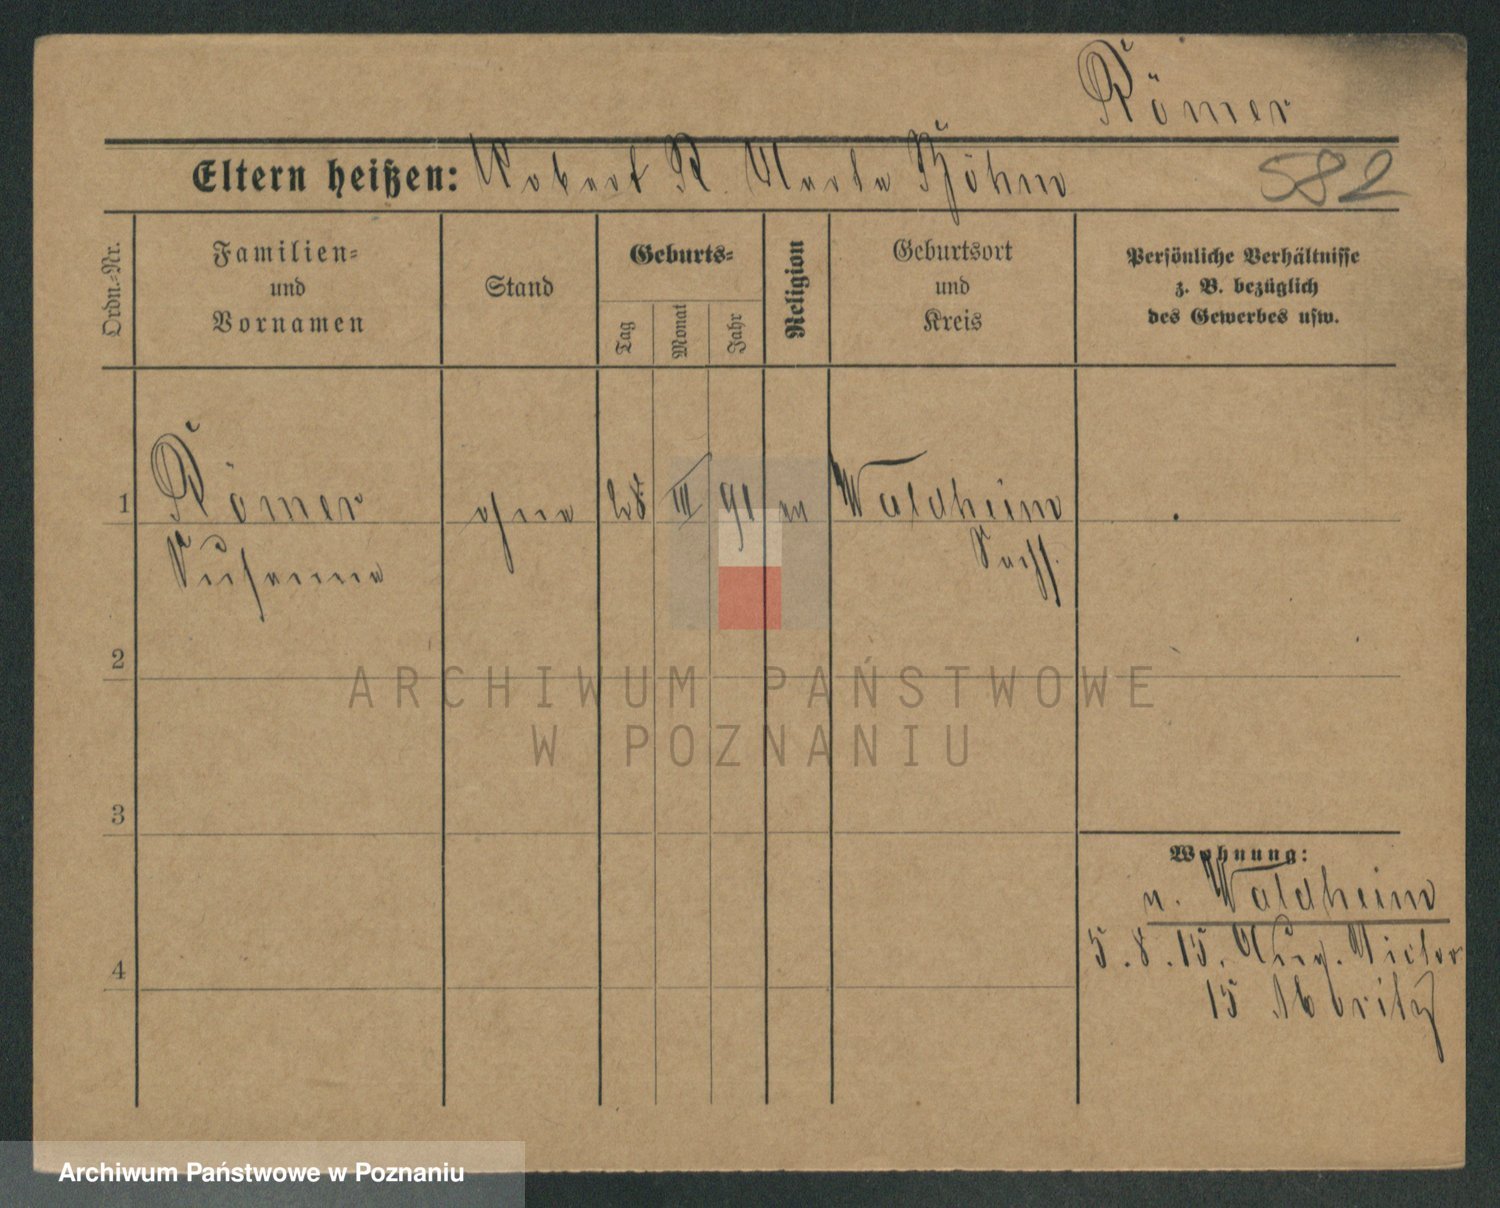 Römer
Eltern heißen: Robert R. Marta Böhm
582
Ordn.-Nr.
Familien-
und
Vornamen
Stand
Geburts-
Tag
Monat
Jahr
Religion
Geburtsort
und
Kreis
Persönliche Verhältnisse
z. B. bezüglich
des Gewerbes usw.
1 Römer ohne 28. III 91 ev Waldheim
Susanne Sachs.
2
3
4
Wohnung:
n. Waldheim
5.8.15. Aug. Victor
15 Moritz
ARCHIWUM PAŃSTWOWE
W POZNANIU
Archiwum Państwowe w Poznaniu